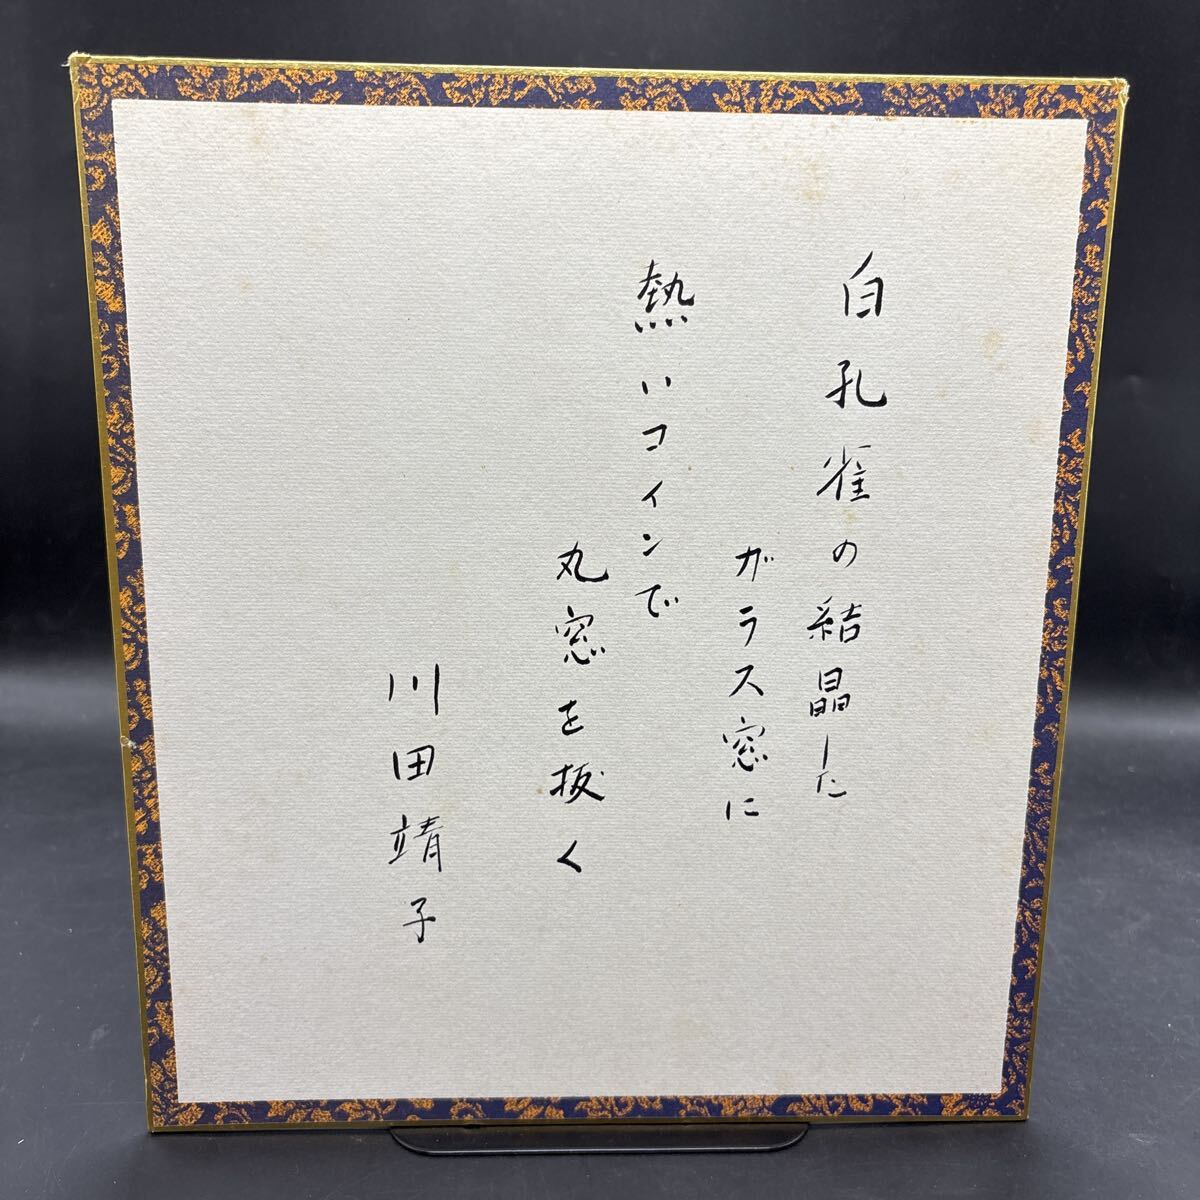 白孔雀の結晶した
ガラス窓に
熱いコインで
丸窓を抜く
川田靖子